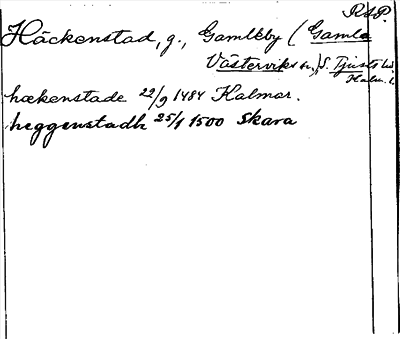 RSP.
Häckenstad, g., Gamleby (Gamla
Västerviks sn,) S. Tjusts hd,
Kalm. l.
hækenstade 22/9 1484 Kalmar.
heggenstadh 25/1 1500 Skara